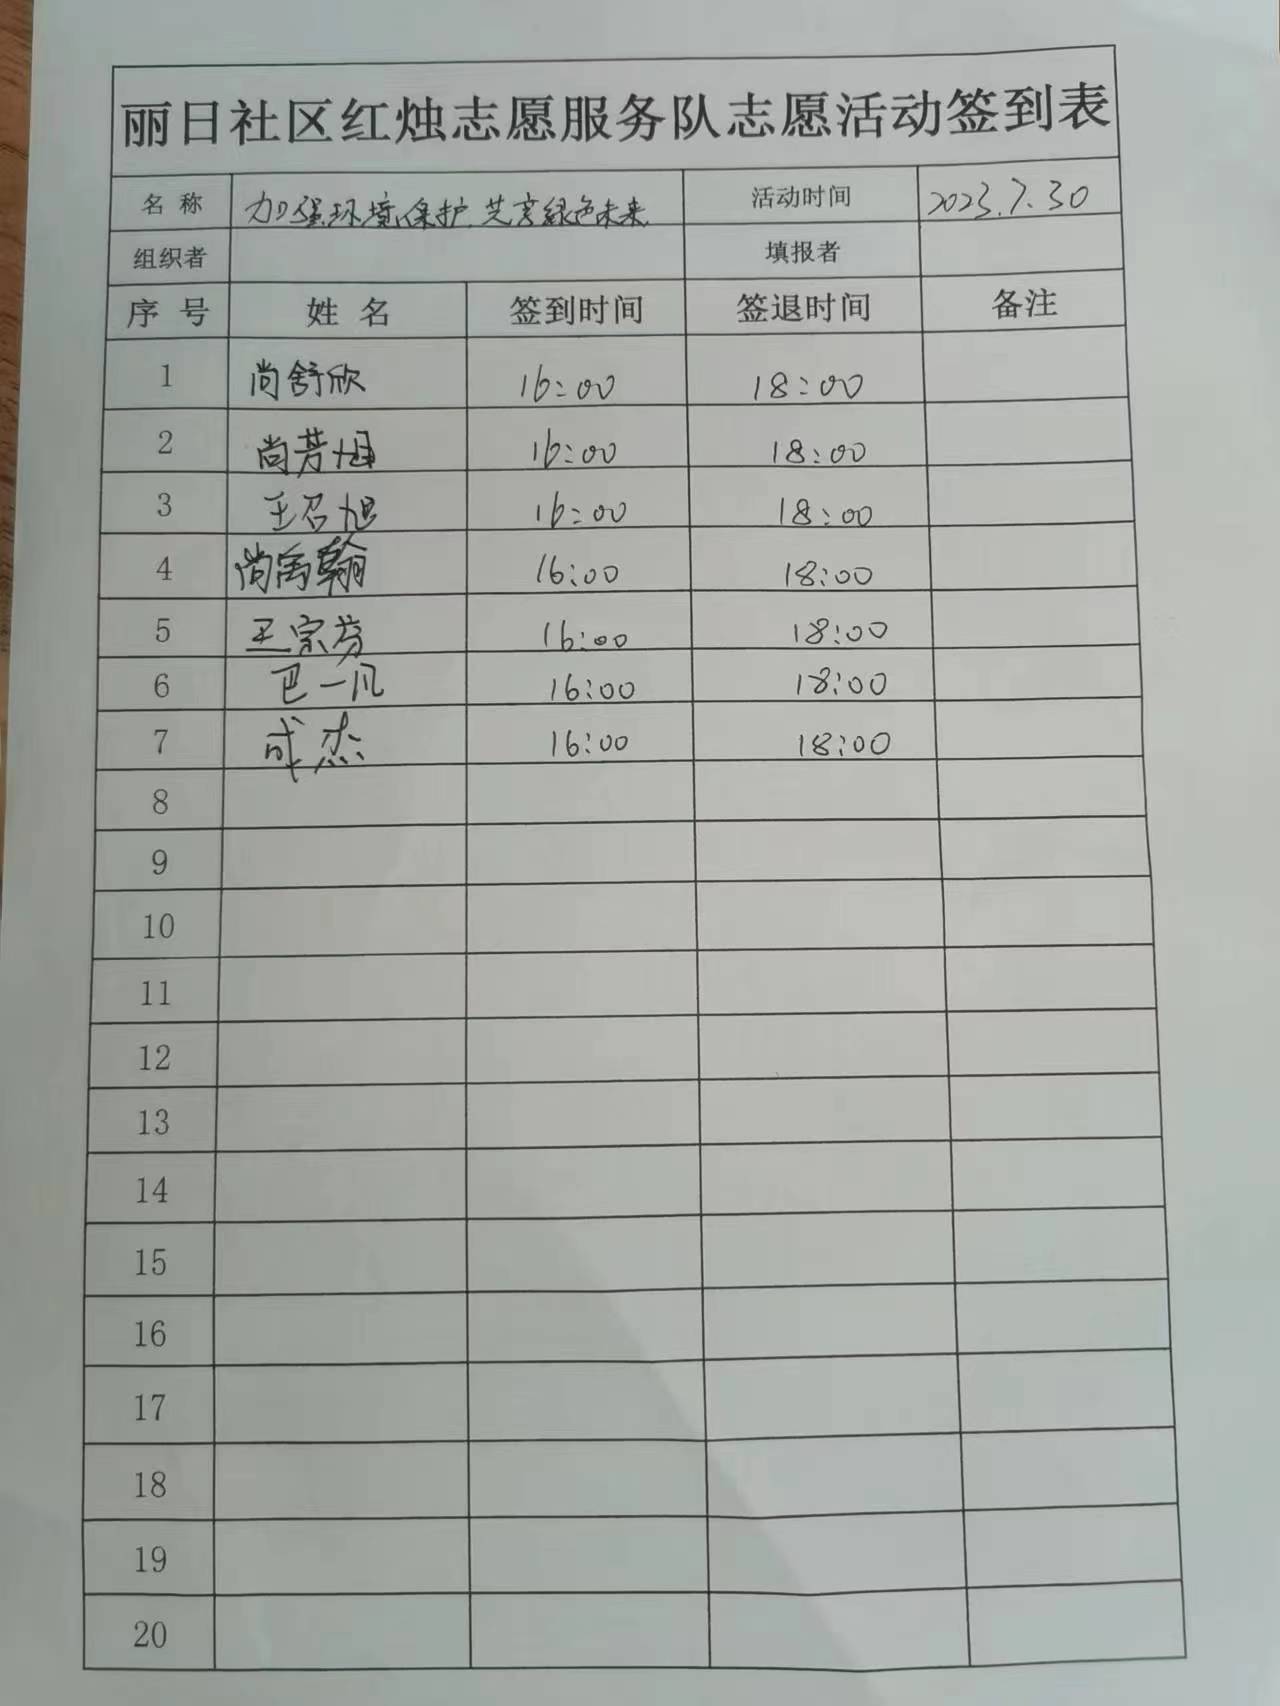 丽日社区红烛志愿服务队志愿活动签到表
名称 加强环境保护,共享绿色未来 活动时间 2023.7.30
组织者 填报者
序号 姓名 签到时间 签退时间 备注
1 尚舒欣 16:00 18:00
2 尚芳旭 16:00 18:00
3 王召旭 16:00 18:00
4 尚禹翰 16:00 18:00
5 王宗芬 16:00 18:00
6 巴一凡 16:00 18:00
7 成杰 16:00 18:00
8
9
10
11
12
13
14
15
16
17
18
19
20